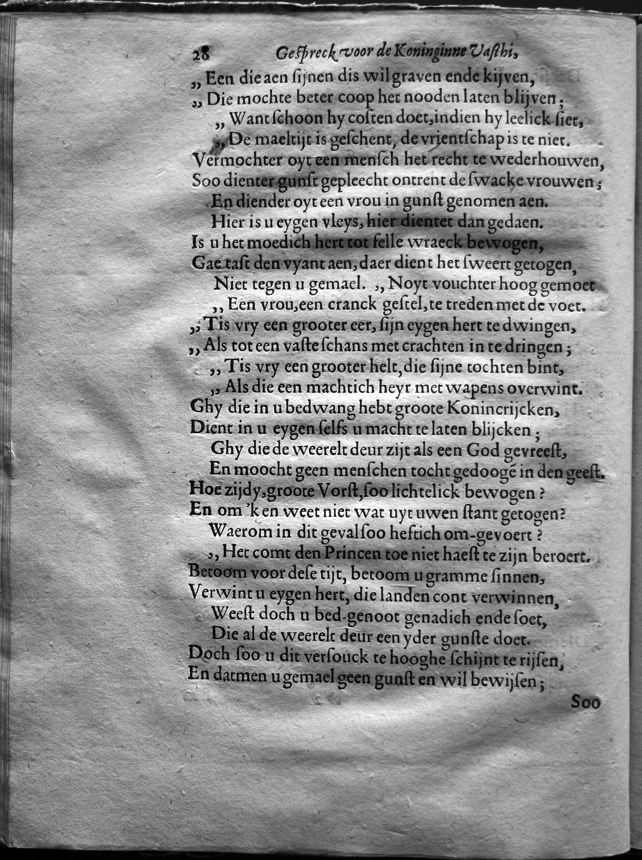 28 Geſpreck voor de Koninginne Vaſthi,
„ Een die aen ſijnen dis wil graven ende kijven,
„ Die mochte beter coop het nooden laten blijven;
„ Want ſchoon hy coſten doet, indien hy leelick ſiet,
„ De maeltijt is geſchent, de vrientſchap is te niet.
Vermochter oyt een menſch het recht te wederhouwen,
Soo dienter gunſt gepleecht ontrent de ſwacke vrouwen;
En diender oyt een vrou in gunſt genomen aen.
Hier is u eygen vleys, hier dientet dan gedaen.
Is u het moedich hert tot felle wraeck bewogen,
Gae taſt den vyant aen, daer dient het ſweert getogen,
Niet tegen u gemael. „ Noyt vouchter hoog gemoet
„ Een vrou, een cranck geſtel, te treden met de voet.
„ 'Tis vry een grooter eer, ſijn eygen hert te dwingen,
„ Als tot een vaſte ſchans met crachten in te dringen;
„ 'Tis vry een grooter helt, die ſijne tochten bint,
„ Als die een machtich heyr met wapens overwint.
Ghy die in u bedwang hebt groote Konincrijcken,
Dient in u eygen ſelfs u macht te laten blijcken;
Ghy die de weerelt deur zijt als een God gevreeſt,
En moocht geen menſchen tocht gedoogē in den geeſt.
Hoe zijdy, groote Vorſt, ſoo lichtelick bewogen?
En om 'k en weet niet wat uyt uwen ſtant getogen?
Waerom in dit geval ſoo heftich om-gevoert?
„ Het comt den Princen toe niet haeſt te zijn beroert.
Betoom voor deſe tijt, betoom u gramme ſinnen,
Verwint u eygen hert, die landen cont verwinnen,
Weeſt doch u bed-genoot genadich ende ſoet,
Die al de weerelt deur een yder gunſte doet.
Doch ſoo u dit verſouck te hooghe ſchijnt te rijſen,
En datmen u gemael geen gunſt en wil bewijſen;
Soo